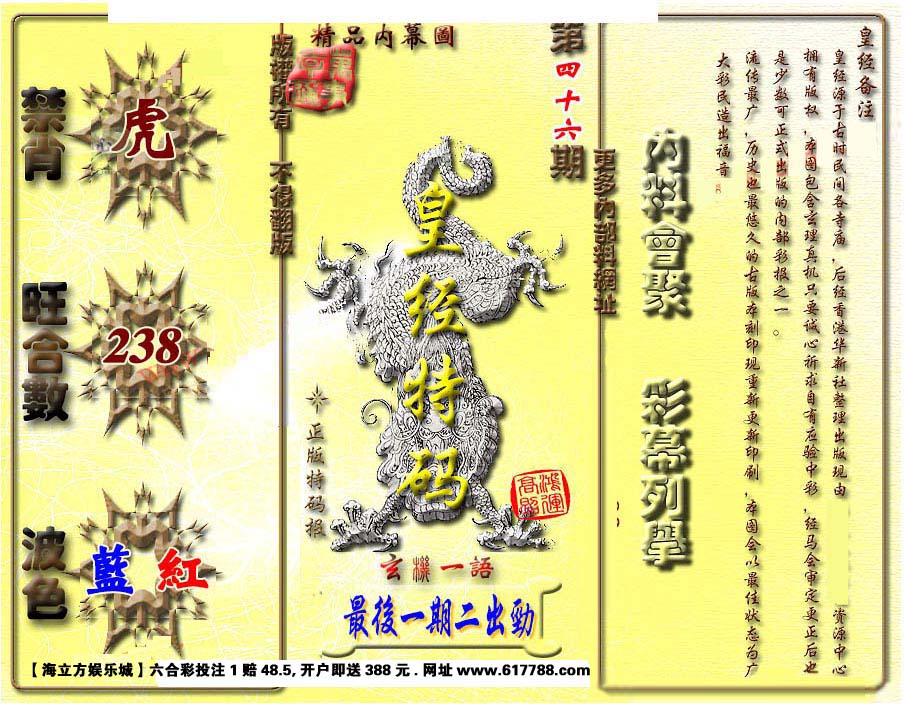 禁肖
虎
旺合數
238
波色
藍 紅
版權所有 不得翻版
精品内幕圖
第四十六期
皇经特码
正版特码报
鴻運高照
玄機一語
最後一期二出勁
更多内部料網址
内料會聚 彩幕列舉
皇经备注
皇经源于古时民间各寺庙,后经香港华新社整理出版现由 资源中心
拥有版权,本图包含玄理真机只要诚心祈求自有应验中彩,经马会审定更正后也
是少数可正式出版的内部彩报之一。
流传最广,历史也最悠久的古版本刻印现重新更新印刷,本图会以最佳状态为广
大彩民造出福音
【海立方娱乐城】六合彩投注 1 赔 48.5, 开户即送 388 元 . 网址 www.617788.com